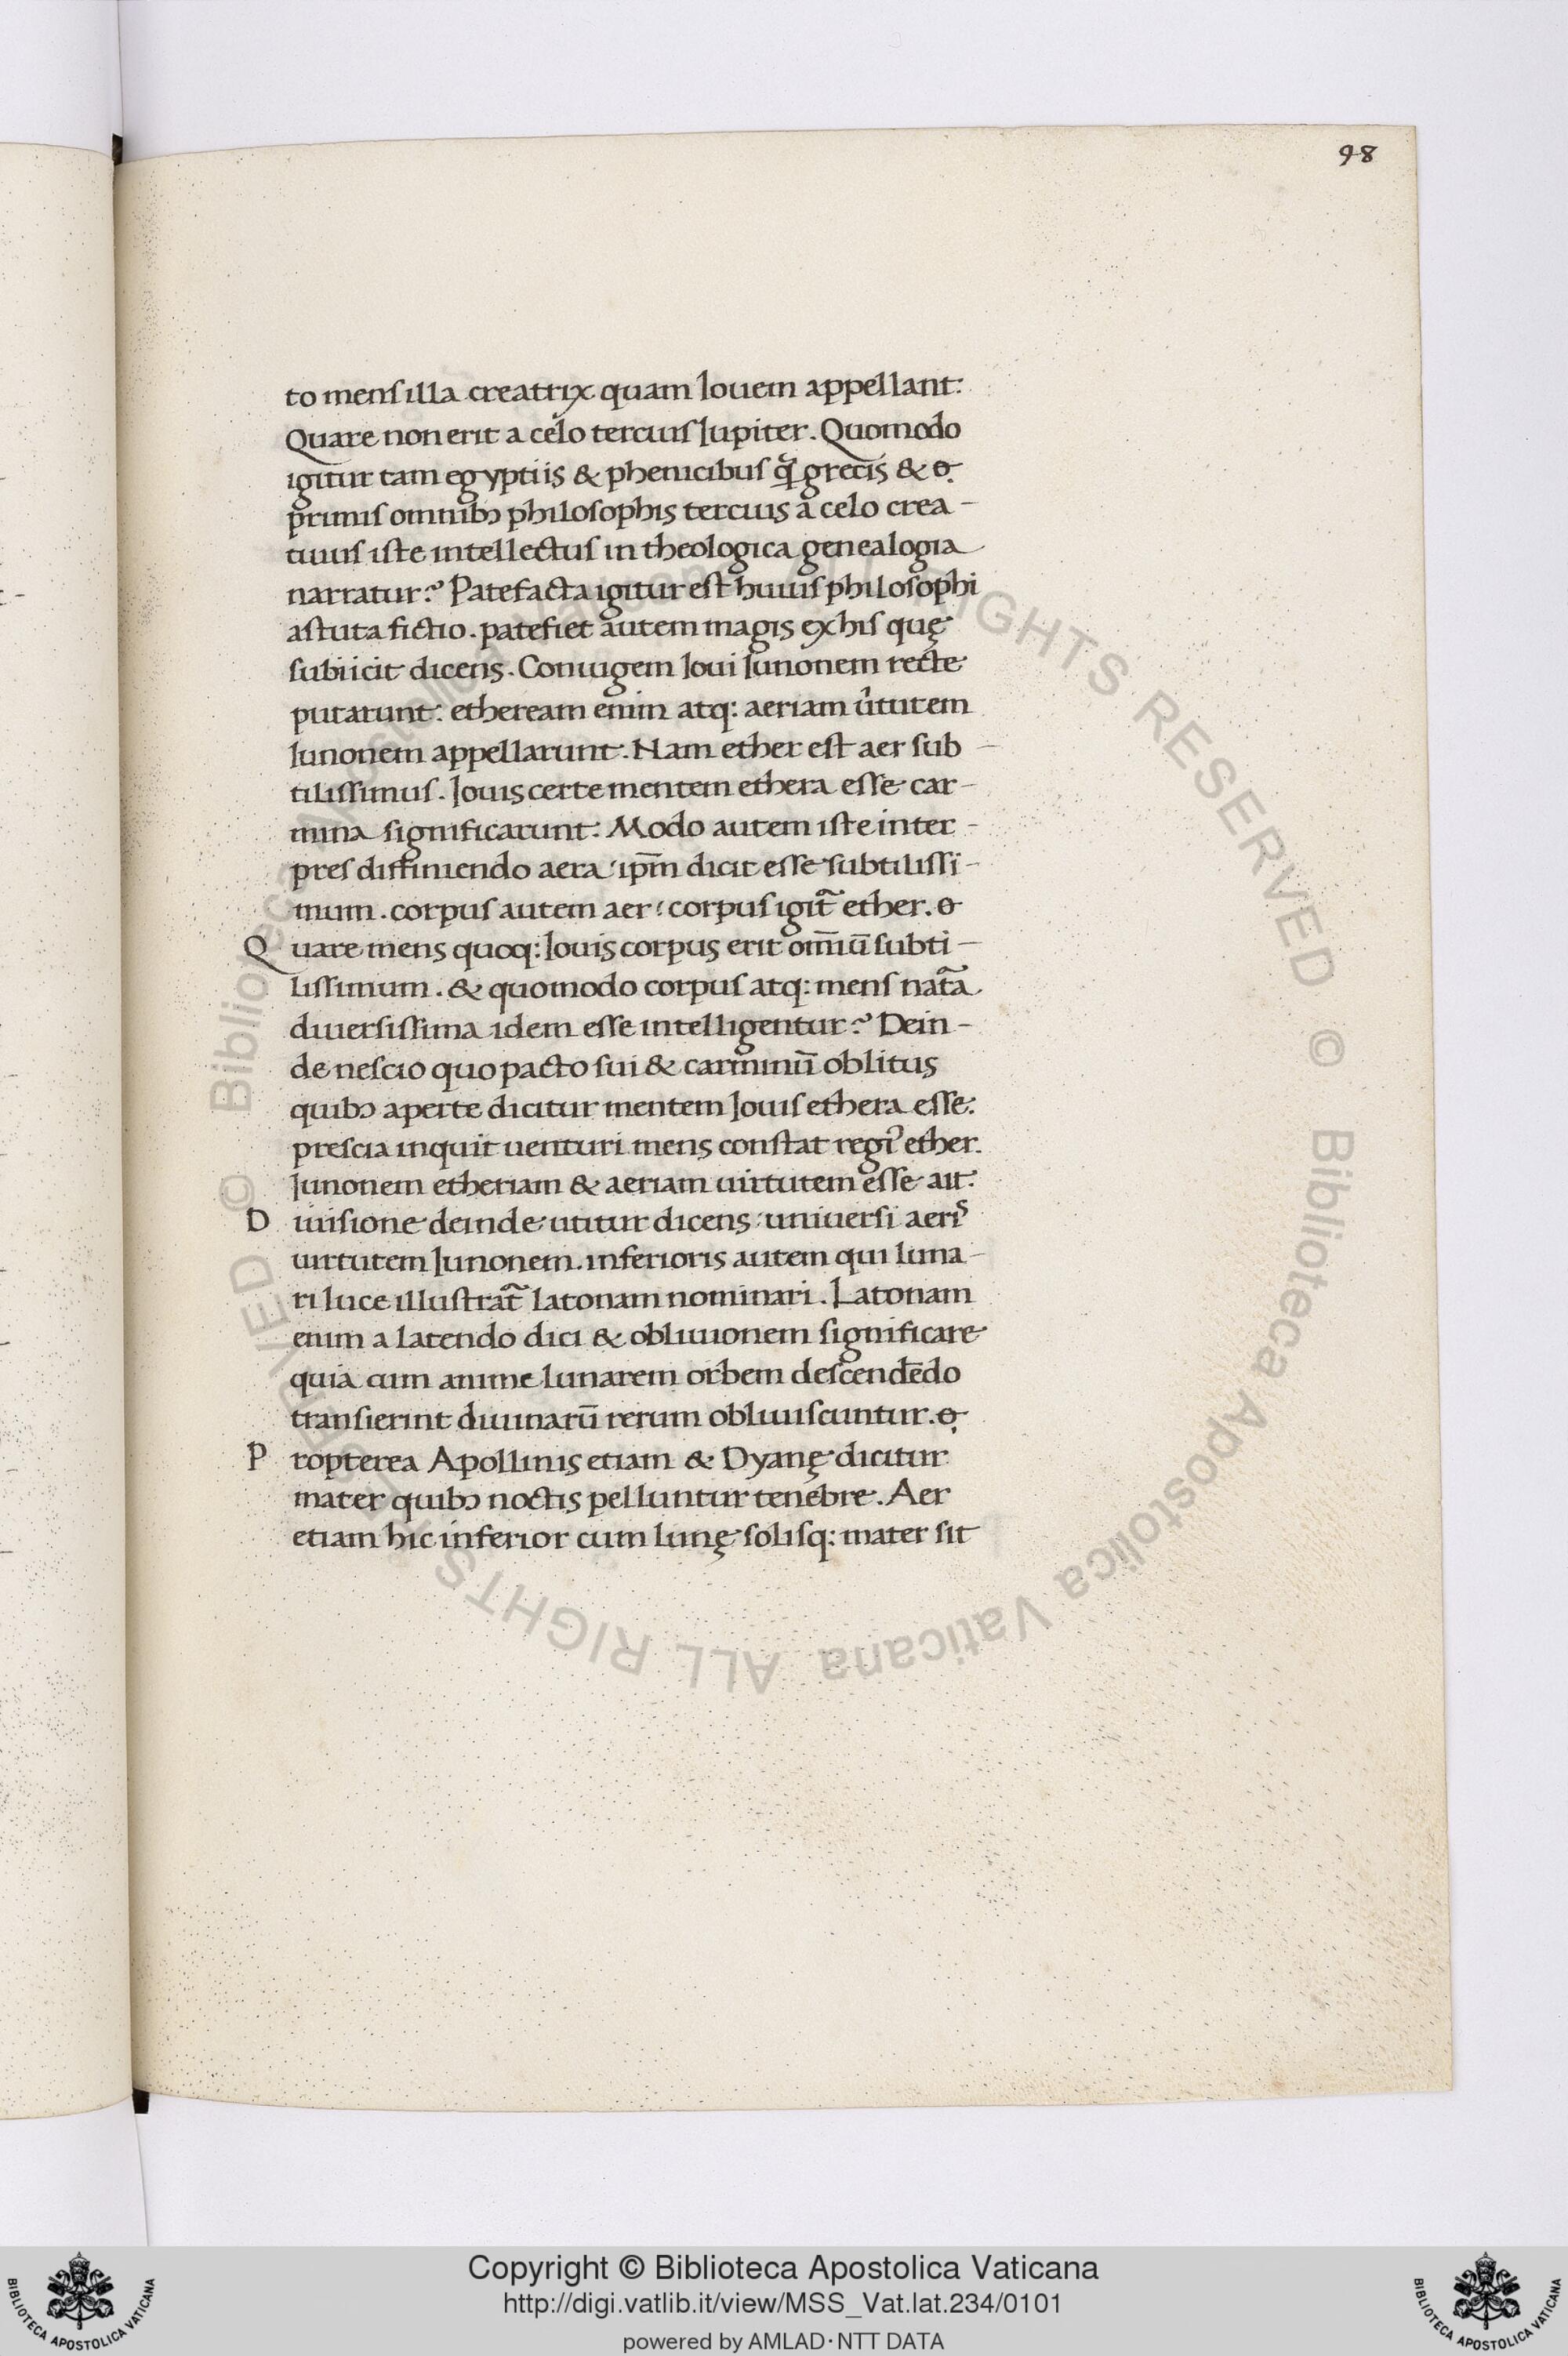 98
to mens illa creatrix quam Iouem appellant:
Quare non erit a celo tercius Iupiter. Quomodo
igitur tam egyptiis & phenicibus q̃ grecis & o
primis omnibꝫ philosophis tercius a celo crea-
tiuus iste intellectus in theologica genealogia
narratur? Patefacta igitur est huius philosophi
astuta fictio. patefiet autem magis ex his quę
subiicit dicens. Coniugem Ioui Iunonem recte
putarunt: etheream enim atq: aeriam u̾tutem
Iunonem appellarunt. Nam ether est aer sub-
tilissimus. Iouis certe mentem ethera esse car-
mina significarunt. Modo autem iste inter-
pres diffiniendo aera: ip̃m dicit esse subtilissi-
mum. corpus autem aer: corpus igit̃ ether. o
Quare mens quoq: Iouis corpus erit om̄iū subti-
lissimum. & quomodo corpus atq: mens nat̃a
diuersissima idem esse intelligentur? Dein-
de nescio quo pacto sui & carminū oblitus
quibꝫ aperte dicitur mentem Iouis ethera esse:
prescia inquit uenturi mens constat regi' ether.
Iunonem etheriam & aeriam uirtutem esse ait:
Diuisione deinde utitur dicens: uniuersi aeris
uirtutem Iunonem. inferioris autem qui luna-
ri luce illustrat̃ latonam nominari. Latonam
enim a latendo dici & obliuionem significare
quia cum anime lunarem orbem descendēdo
transierint diuinarū rerum obliuiscuntur. o
Propterea Apollinis etiam & Dyanę dicitur
mater quibꝫ noctis pelluntur tenebre. Aer
etiam hic inferior cum lunę solisq: mater sit
© Biblioteca Apostolica Vaticana ALL RIGHTS RESERVED © Biblioteca Apostolica Vaticana ALL RIGHTS RESERVED
Copyright © Biblioteca Apostolica Vaticana
http://digi.vatlib.it/view/MSS_Vat.lat.234/0101
powered by AMLAD·NTT DATA
BIBLIOTECA APOSTOLICA VATICANA
BIBLIOTECA APOSTOLICA VATICANA